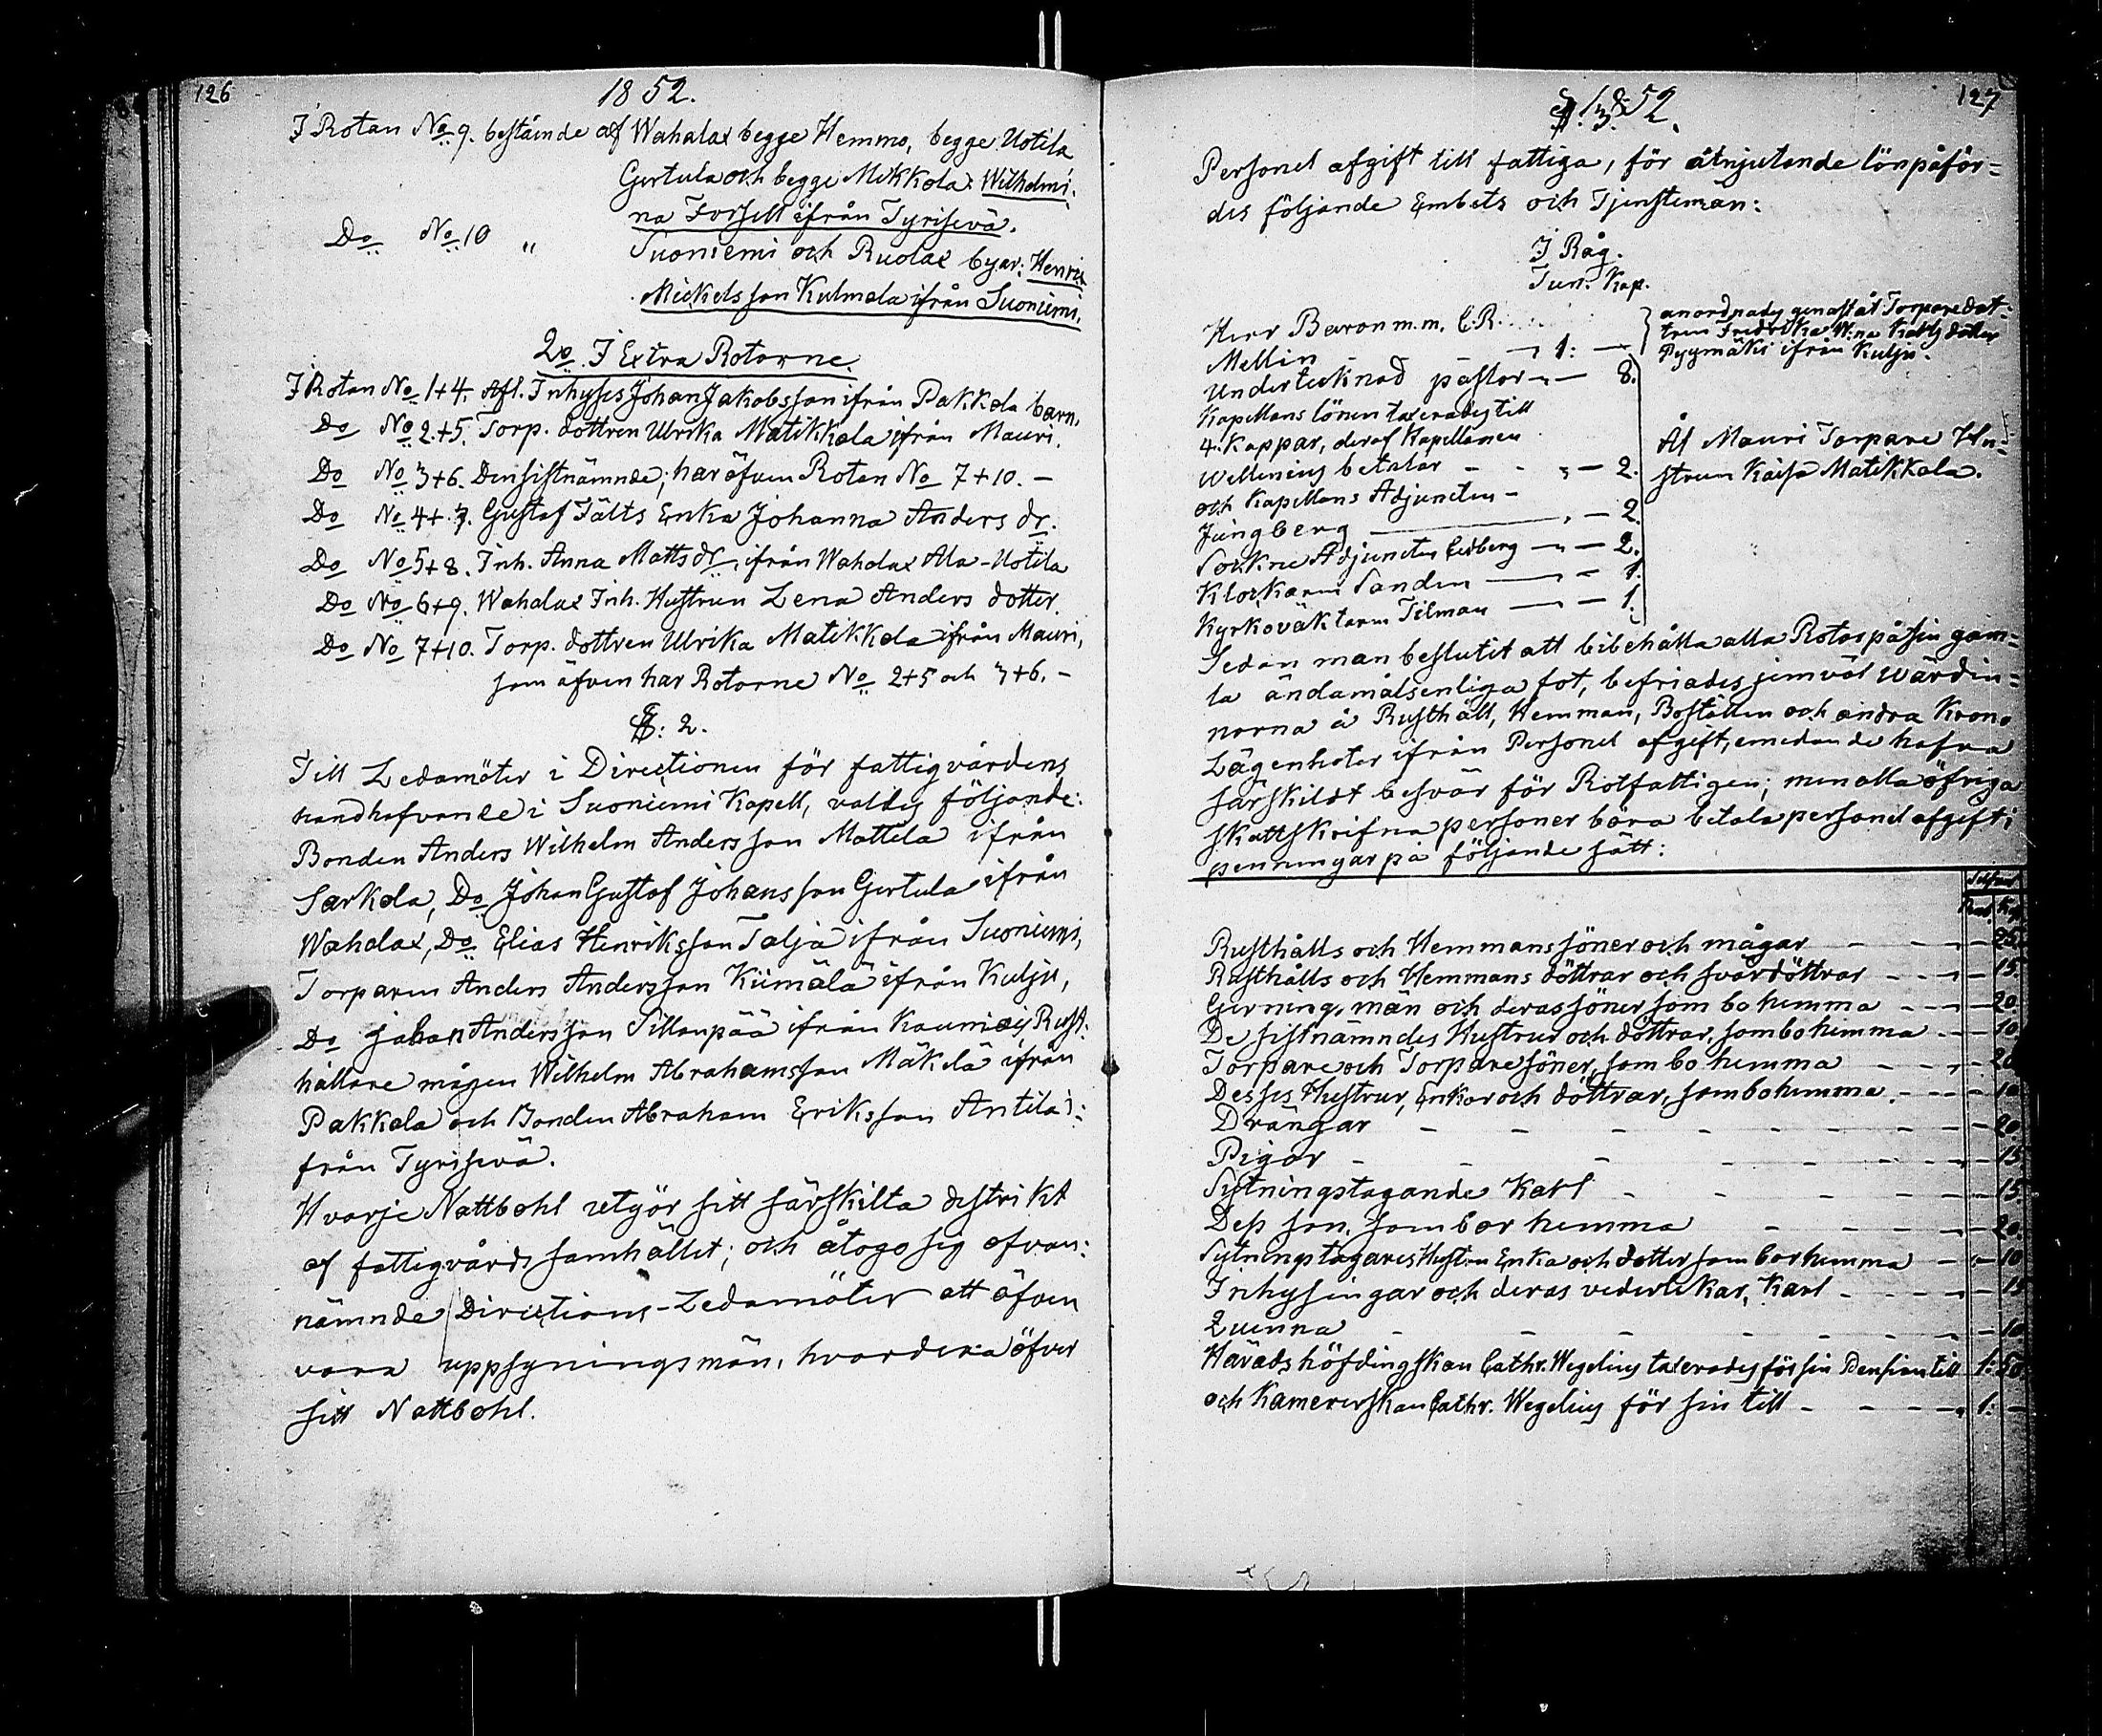 126
1852.
I Rotan No 9. bestående af Wahalax begge Hemmo, begge Uotila
Gertula och begge Mikkola: Wilhelmi-
na Forsell ifrån Tyrisevä.
Do No 10 " Suoniemi och Ruolax byar: Henric
Mickelsson Kulmala ifrån Suoniemi.
2o. I Extra Rotarne.
I Rotan No 1+4. Afl. Inhyses Johan Jakobsson ifrån Pakkala barn.
Do No 2+5. Torp. dottren Ulrika Matikkala ifrån Mauri.
Do No 3+6. Den sistnämnde; har öfven Rotan No 7+10. -
Do No 4+7. Gustaf Fälts Enka Johanna Anders dr.
Do No 5+8. Inh. Anna Matts dr, ifrån Wahalax Ala-Uotila
Do No 6+9. Wahalax Inh. Hustrun Lena Anders dotter.
Do No 7+10. Torp. dottren Ulrika Matikkala ifrån Mauri,
som äfven har Rotorne No 2+5 och 3+6. -
§: 2.
Till Ledamöter i Directionen för fattigvårdens
handhafvande i Suoniemi Kapell, valdes följande:
Bonden Anders Wilhelm Andersson Mattila ifrån
Sarkola, Do Johan Gustaf Johansson Gertula ifrån
Wahalax, Do Elias Henriksson Talja ifrån Suoniemi,
Torparen Anders Andersson Kiimälä ifrån Kulju,
Do Johan Andersson Sillanpää ifrån Kauniais, Rust-
hållare mågen Wilhelm Abrahamsson Mäkelä ifrån
Pakkala och Bonden Abraham Eriksson Antila i-
från Tyrisevä.
Hvarje Nattbohl utgör sitt särskilta distrikt
af fattigvårds samhället; och åtogo sig ofvan-
nämnde Directions-Ledamöter att äfven
vara uppsyningsmän, hvardera öfver
sitt Nattbohl.
127
1852.
§. 3.
Personel afgift till fattiga, för åtnjutande lön påför-
des följande Embets och Tjensteman:
I Råg.
Tun. Kap.
Herr Baron m.m. C.R.
Mellin - 1: -
anordnades genast åt Torpare dot-
tren Fredrika W:na Karls dotter
Pyymäki ifrån Kulju.
Undertecknad pastor - - 8.
Kapellans lönen taxerades till
4. Kappar, deraf Kapellanen
Wellenius betalar - - - 2.
och Kapellans Adjuncten -
Jungberg - - 2.
Sockne Adjuncten Eedberg - - 2.
Klockaren Sanden - - 1.
Kyrkoväktaren Tilman - - 1.
Åt Mauri Torpare Hu-
strun Kaisa Matikkala.
Sedan man beslutit att bibehålla alla Rotar på sin gam-
la ändamålsenliga fot, befriades jemväl wärdin-
norna å Rusthåll, Hemman, Boställen och andra Krono
Lägenheter ifrån Personel afgift, emedan de hafva
särskildt besvär för Rotfattigen; men alla öfriga
skattskrifna personer böra betala personel afgift i
penningar på följande sätt:
Rusthålls och Hemmans söner och mågar - - - - 25.
Rusthålls och Hemmans döttrar och svärdöttrar - - - - 15.
Gernings män och deras söner som bo hemma - - - - 20.
De sistnämndes Hustrur och döttrar, som bo hemma - - - 10
Torpare och Torpare söner, som bo hemma - - - - 20
Desses Hustrur, Enkor och döttrar, som bo hemma. - - - - 10
Drängar - - - - - - - - 20.
Pigor - - - - - - - 15
Sytningstagande Karl - - - - - - 15.
Dess son, som bor hemma - - - - - 20.
Sytningstagares Hustru Enka och dotter som bor hemma - - - 10
Inhysingar och deras vederlikar, Karl - - - - - 15
Quinna - - - - - - - - 10
Härads höfdingskan Cathr. Wegelius taxerades för sin Pension till 1: 50
och Kamererskan Cathr. Wegelius för sin till - - - - 1: -